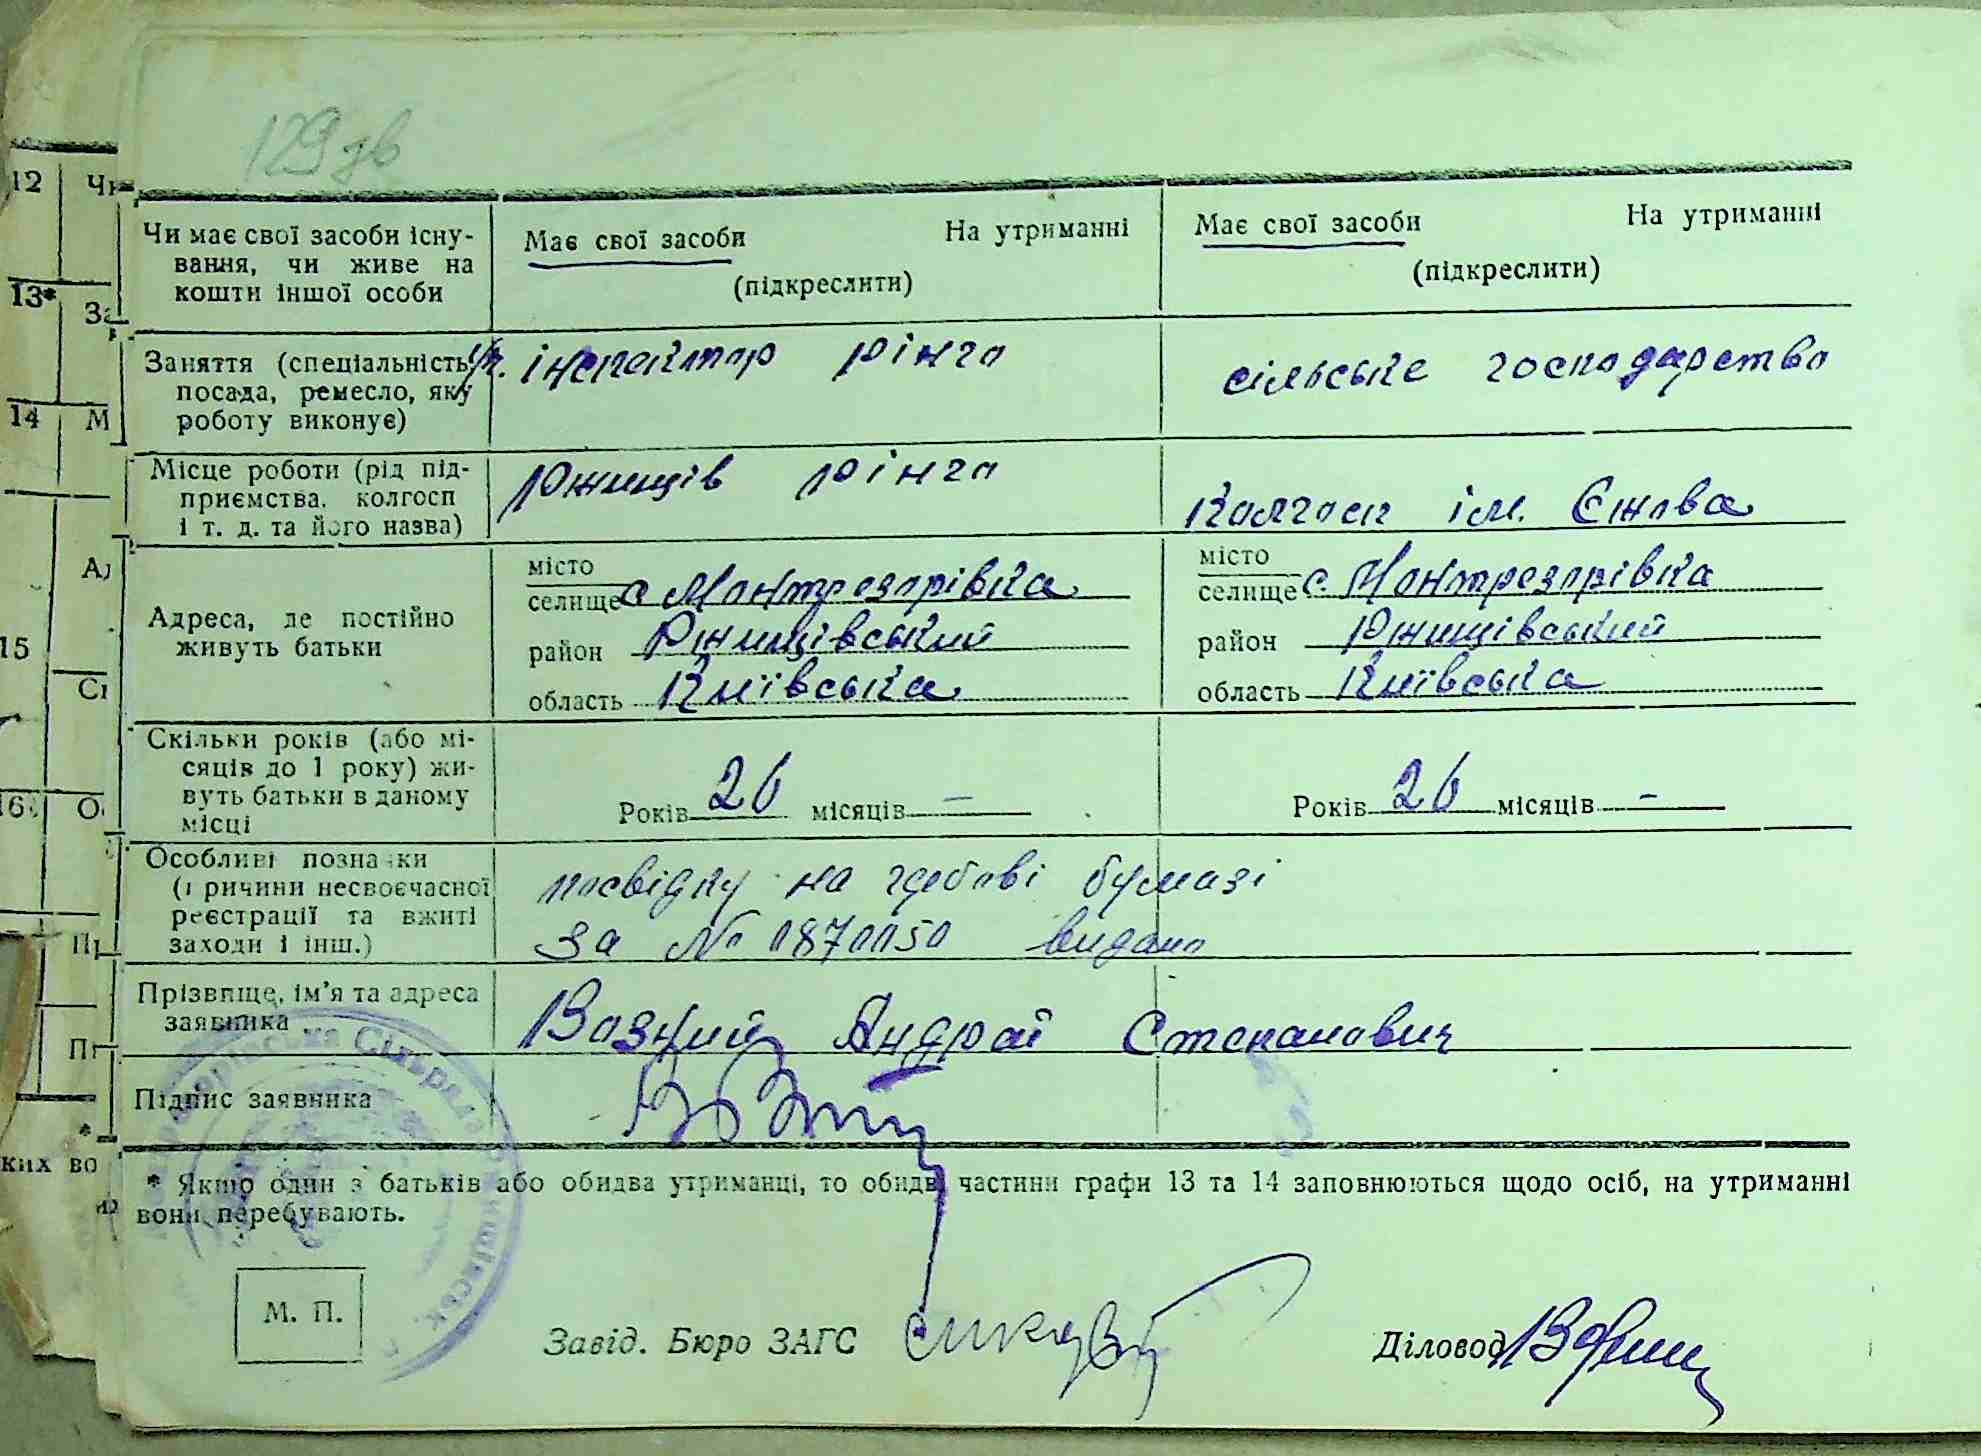 129 зв
12 Чи
13* За
14 М
15
16
Чи має свої засоби існу-
вання, чи живе на
кошти іншої особи
Має свої засоби На утриманні
(підкреслити)
Має свої засоби На утриманні
(підкреслити)
Заняття (спеціальність,
посада, ремесло, яку
роботу виконує)
інспектор рінго
сільське господарство
Місце роботи (рід під-
приємства, колгосп
і т. д. та його назва)
Ржищів рінго
Колгосп ім. Єжова
Адреса, де постійно
живуть батьки
місто
селище с Монтрезорівка
район Ржищівський
область Київська
місто
селище с. Монтрезорівка
район Ржищівський
область Київська
Скільки років (або мі-
сяців до 1 року) жи-
вуть батьки в даному
місці
Років 26 місяців —
Років 26 місяців —
Особливі позначки
(причини несвоєчасної
реєстрації та вжиті
заходи і інш.)
посвідку на гербові бумазі
за № 0870050 видано
Прізвище, ім'я та адреса
заявника
Возний Андрій Степанович
Підпис заявника
* Якщо один з батьків або обидва утриманці, то обидві частини графи 13 та 14 заповнюються щодо осіб, на утриманні
вони перебувають.
М. П.
Завід. Бюро ЗАГС
Діловод